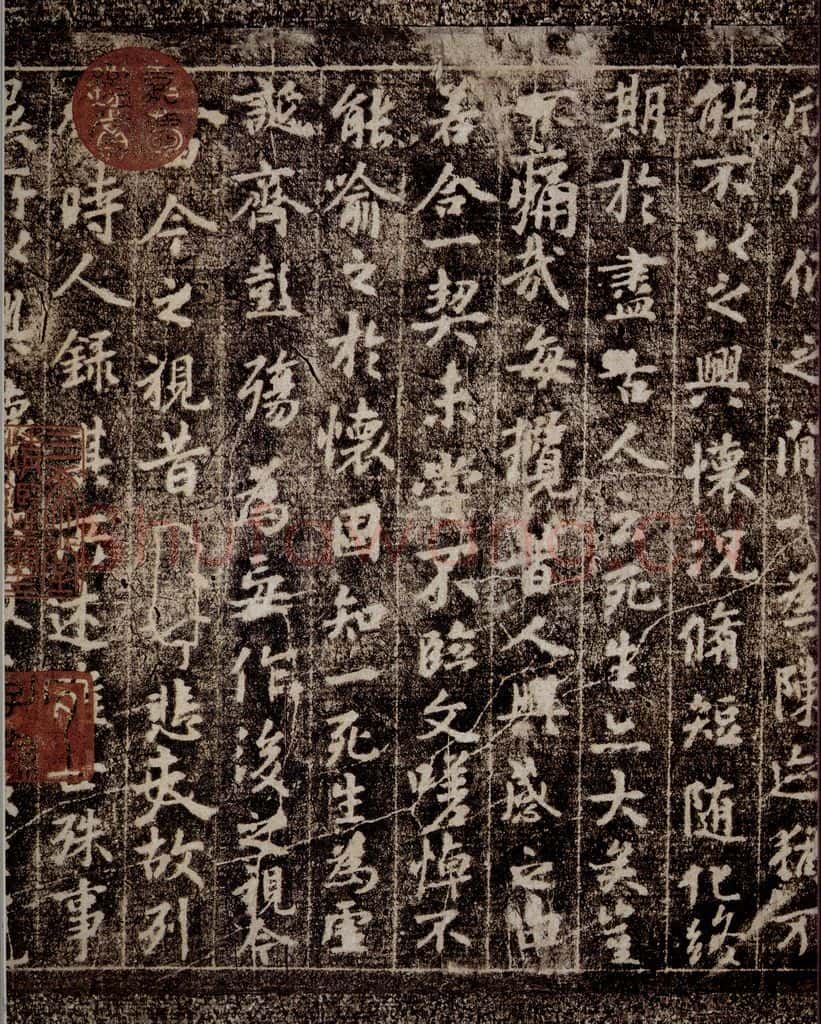 俛仰之間以為陳迹猶不
能不以之興懷況脩短随化終
期於盡古人云死生亦大矣豈
不痛哉每攬昔人興感之由
若合一契未嘗不臨文嗟悼不
能喻之於懷固知一死生為虛
誕齊彭殤為妄作後之視今
由今之視昔悲夫故列
時人録其所述雖世殊事
異所以興懷